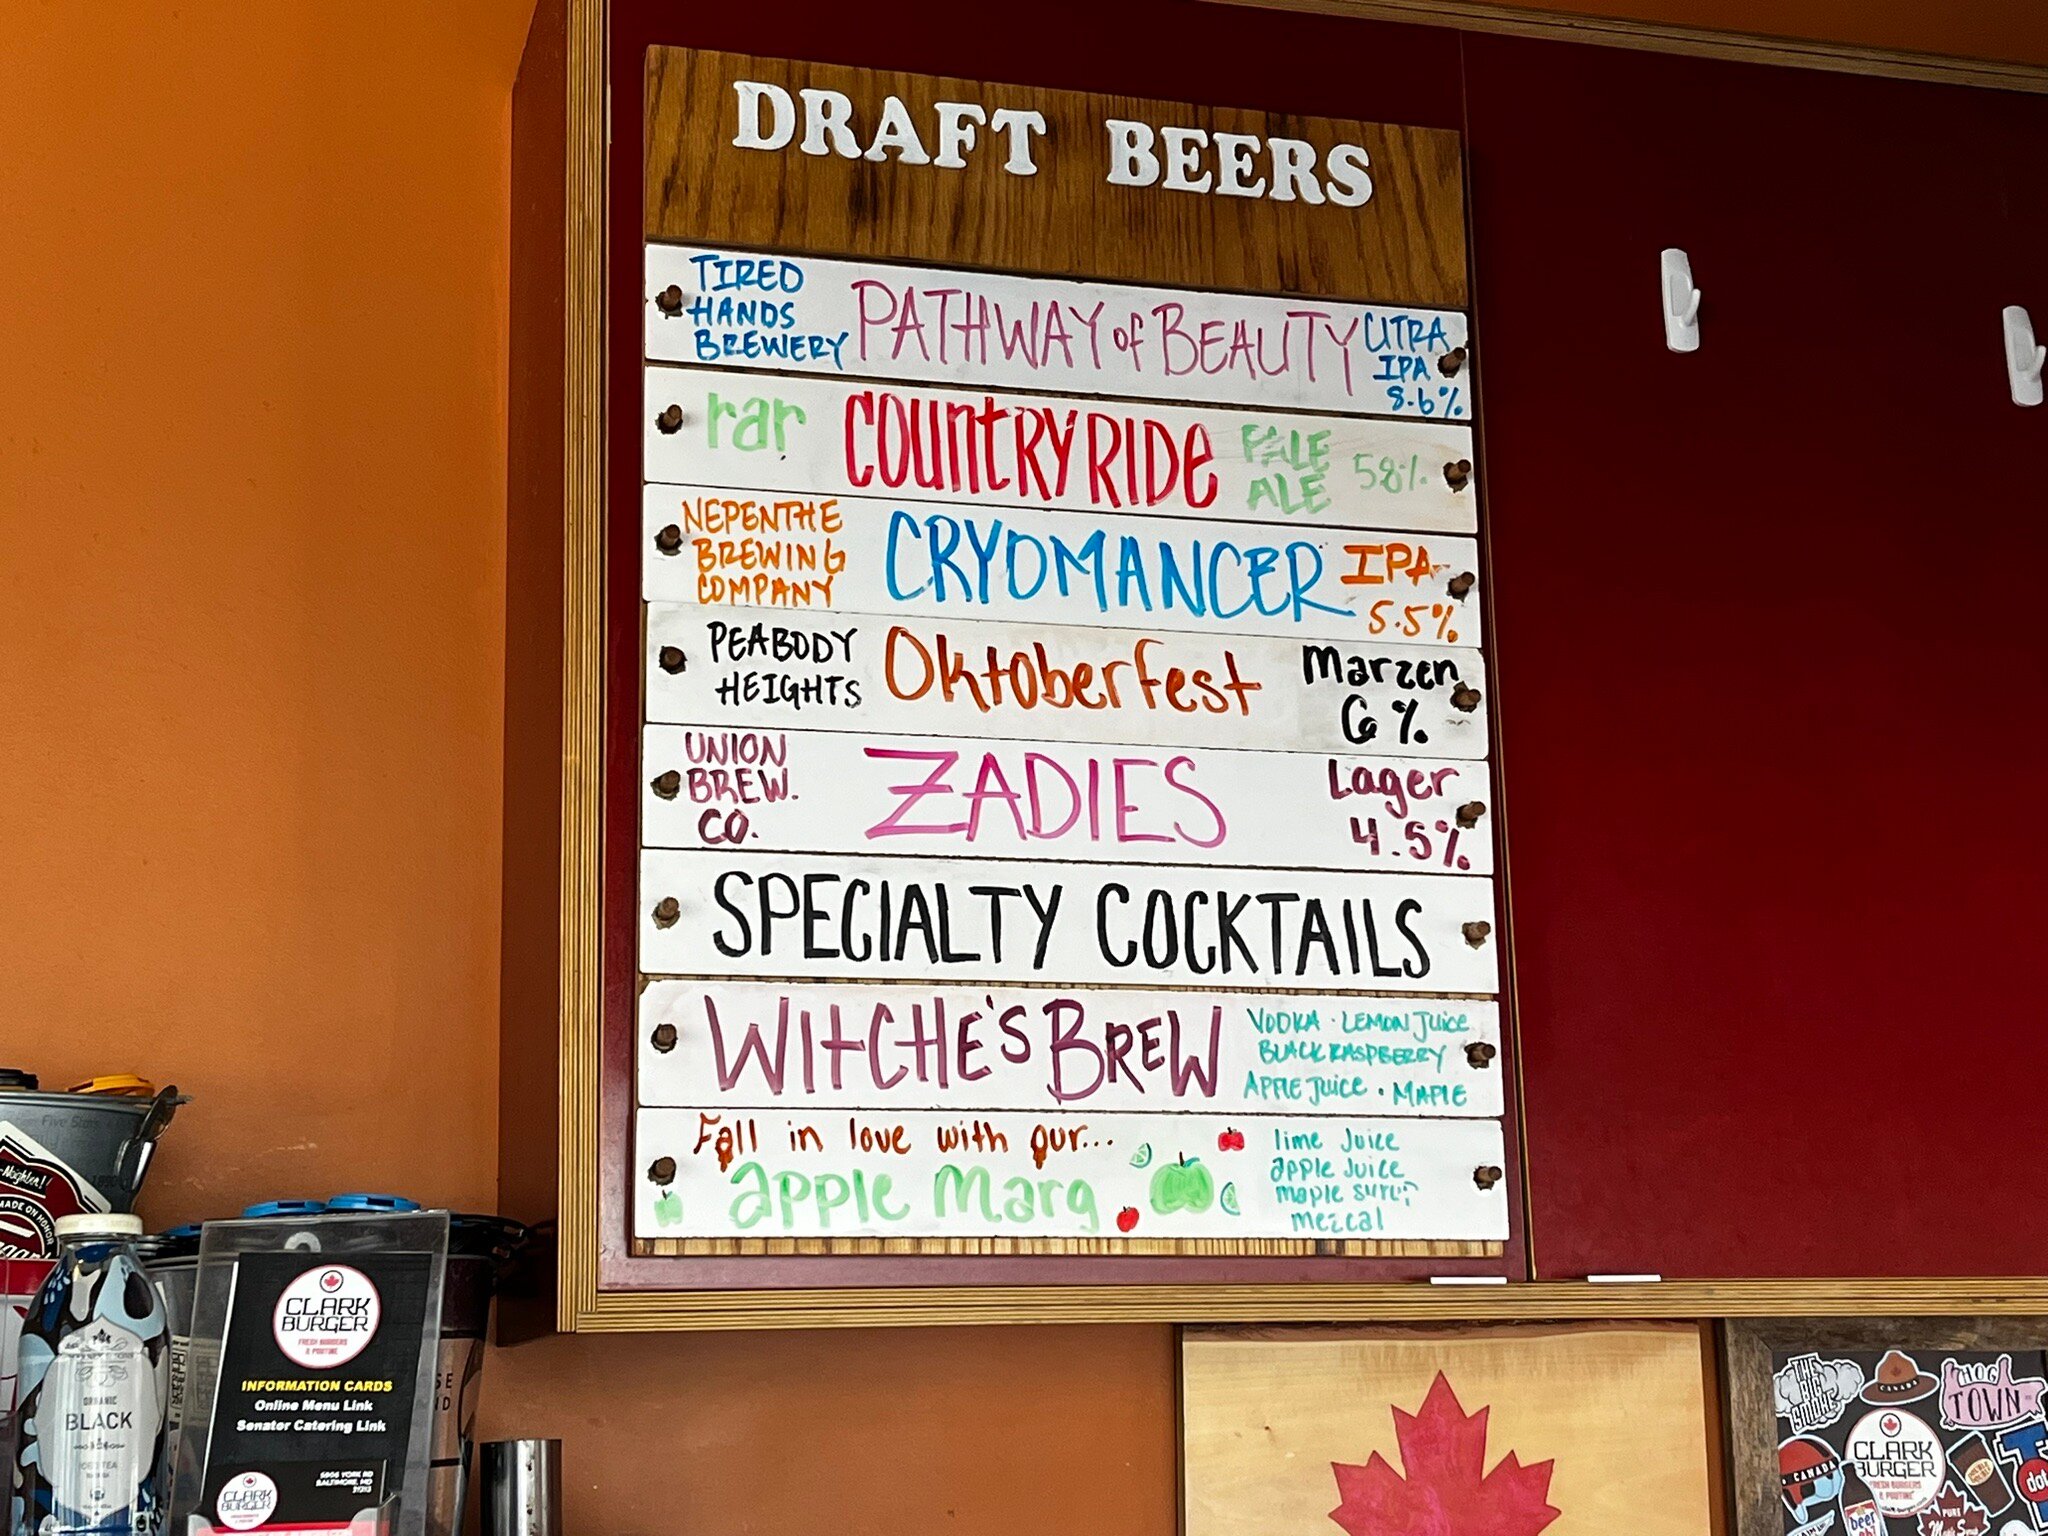 DRAFT BEERS
TIRED
HANDS
BREWERY
PATHWAY of BEAUTY
CITRA
IPA
8.6%
rar
COUNTRY RIDE
PALE
ALE
58%
NEPENTHE
BREWING
COMPANY
CRYOMANCER
IPA
5.5%
PEABODY
HEIGHTS
Oktoberfest
Marzen
6%
UNION
BREW.
CO.
ZADIES
Lager
4.5%
SPECIALTY COCKTAILS
WITCHE'S BREW
VODKA · LEMON JUICE
BLACK RASPBERRY
APPLE JUICE · MAPLE
Fall in love with our...
apple marg
lime juice
apple juice
maple
mezcal
Neighbor!
MADE ON HONOR
ORGANIC
BLACK
ICED TEA
CLARK
BURGER
FRESH BURGERS
& POUTINE
INFORMATION CARDS
Online Menu Link
Senator Catering Link
CLARK
BURGER
5906 YORK RD
BALTIMORE, MD
21212
THE
BIG
SMOKE
CANADA
HOG
TOWN
CANADA
CLARK
BURGER
FRESH BURGERS
& POUTINE
beer
PURE
dot